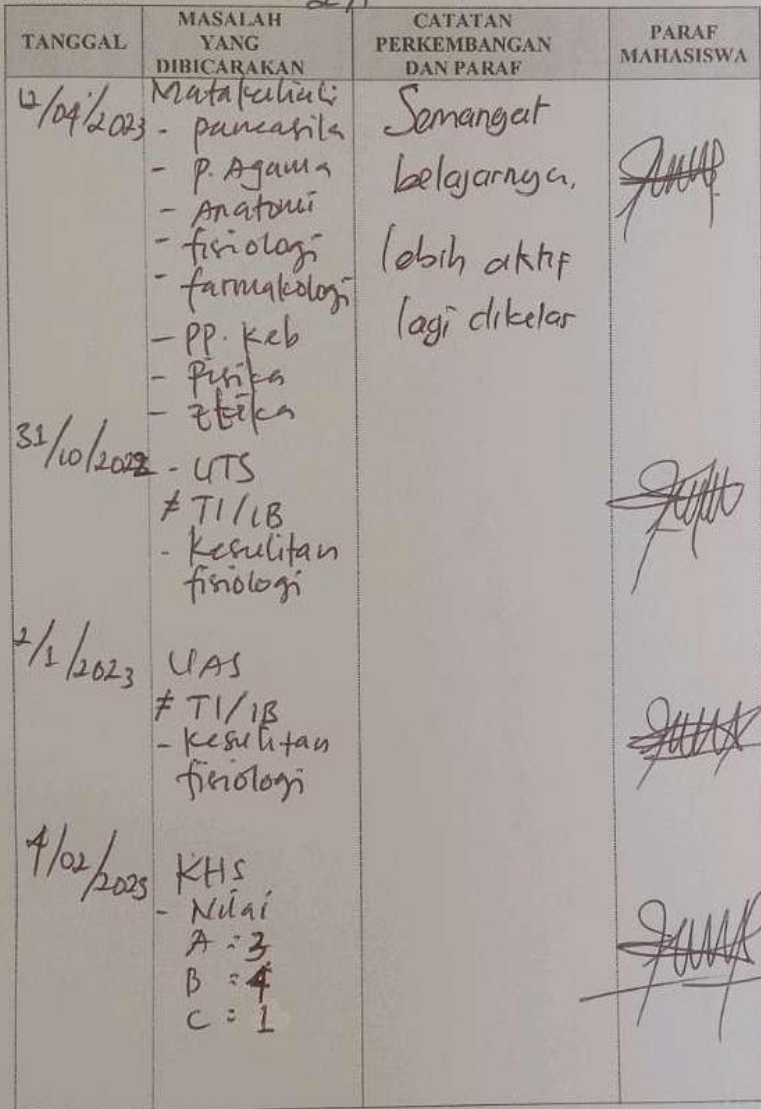 TANGGAL
MASALAH
YANG
DIBICARAKAN
CATATAN
PERKEMBANGAN
DAN PARAF
PARAF
MAHASISWA
12/04/2023
Matakuliah:
- pancasila
- P. Agama
- Anatomi
- fisiologi
- farmakologi
- PP. Keb
- Fisika
- Etika
Semangat
belajarnya,
lebih aktif
lagi dikelas
31/10/2022
- UTS
≠ TI/IB
- Kesulitan
fisiologi
2/1/2023
UAS
≠ TI/IB
- Kesulitan
fisiologi
4/02/2023
KHS
- Nilai
A : 3
B : 4
C : 1